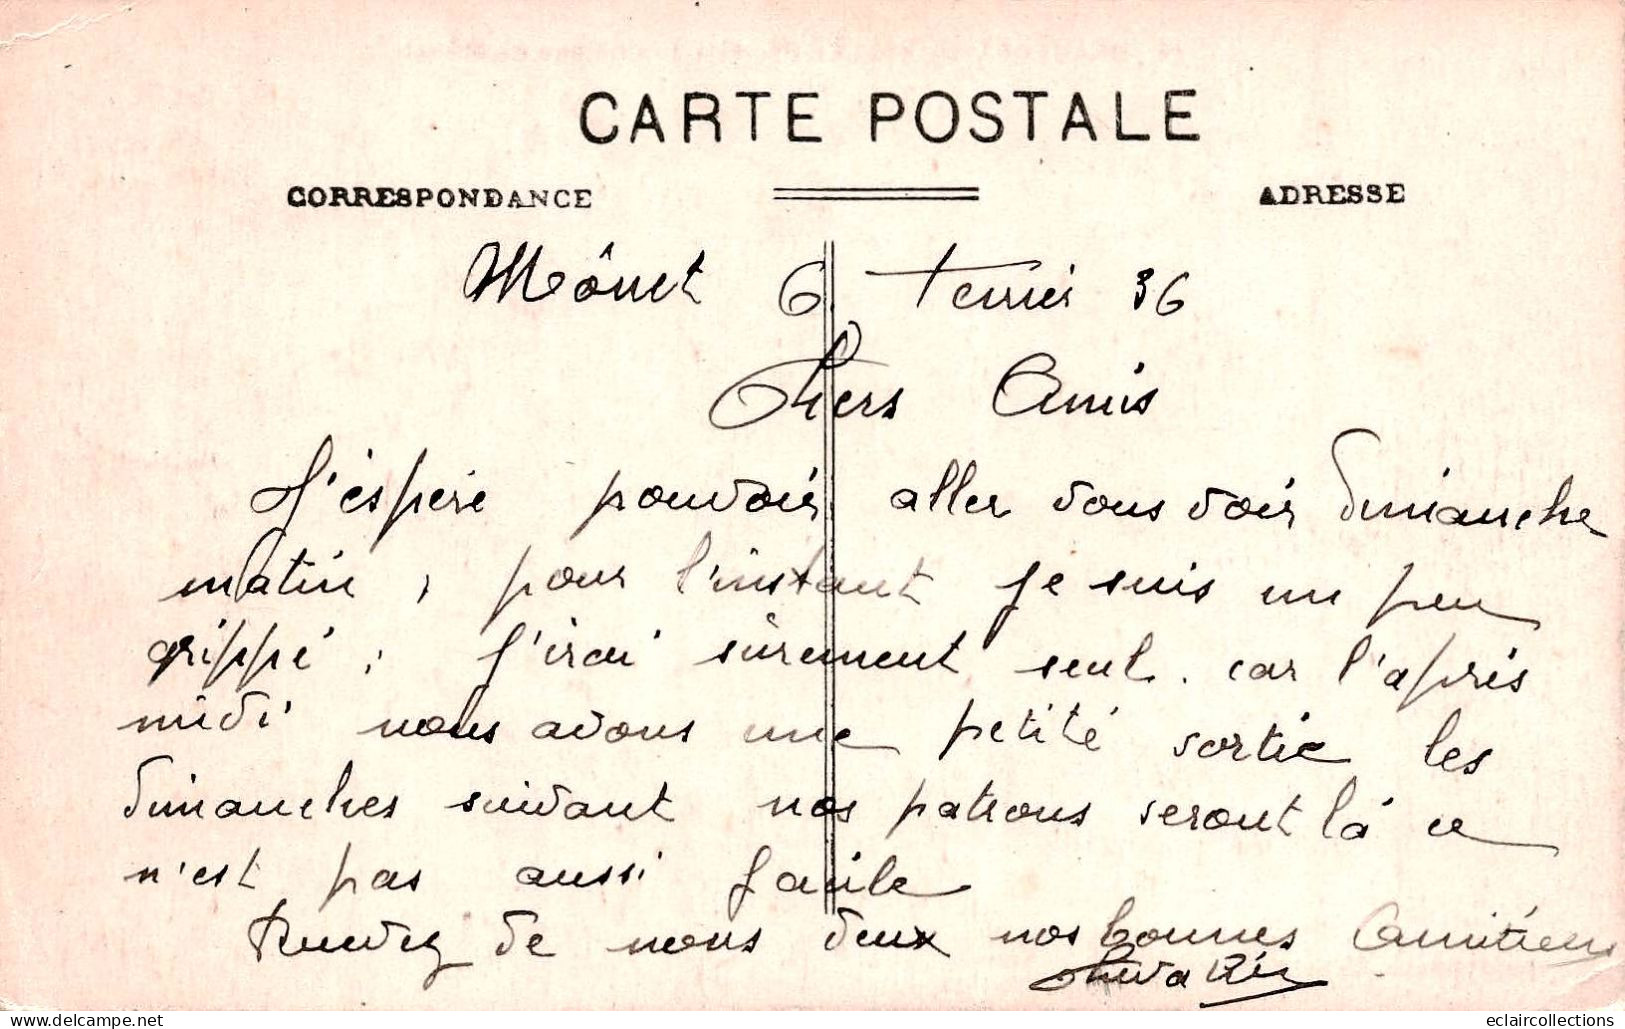 CARTE POSTALE
CORRESPONDANCE
ADRESSE
Mônet 6 Février 36
Chers Amis
J'éspère pouvoir aller vous voir Dimanche
matin, pour l'instant je suis un peu
grippé ; j'irai sûrement seul. car l'après
midi nous avons une petite sortie les
Dimanches suivant nos patrons seront là ce
n'est pas aussi facile
de nous deux nos bonnes Amitiés
eclaircollections